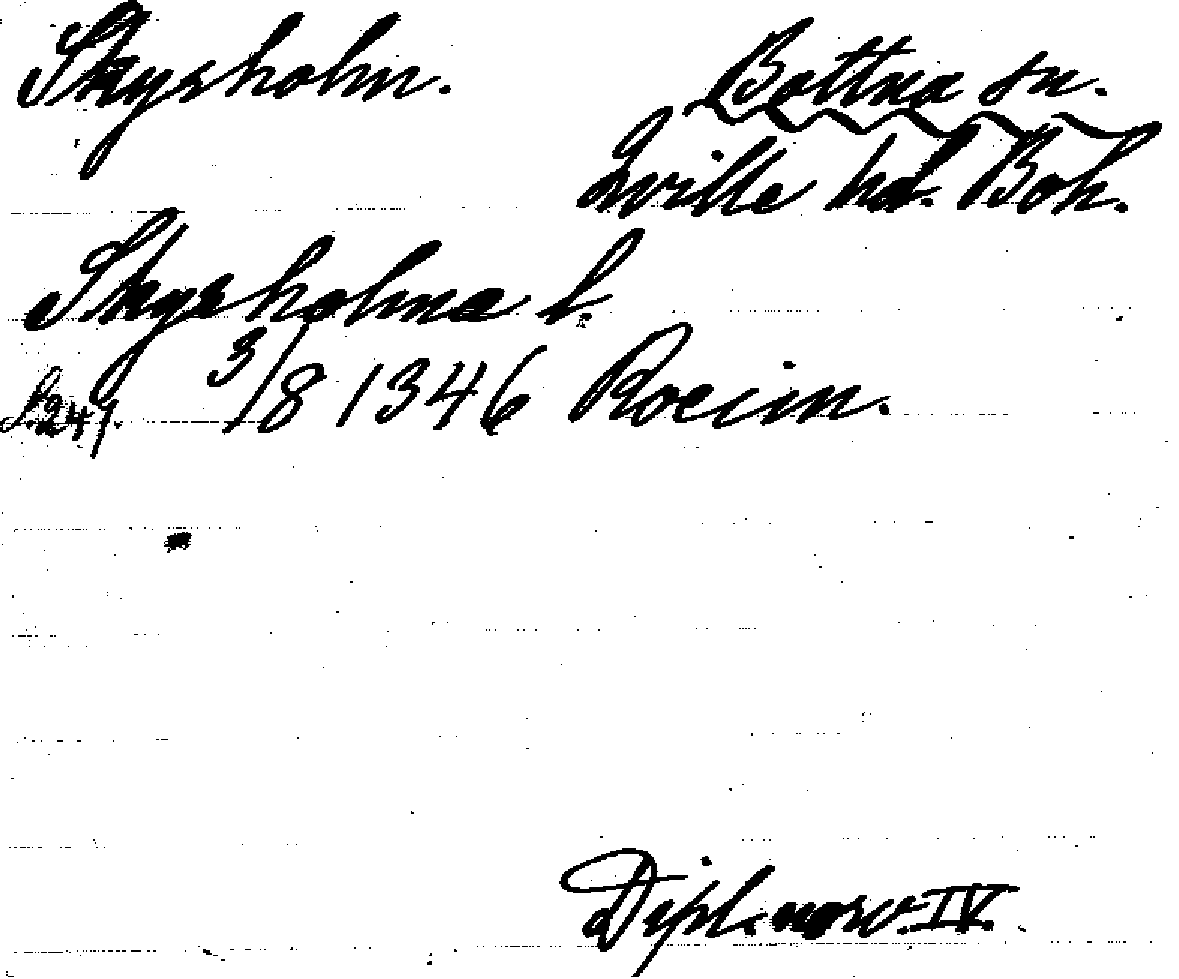 Skysholm. Bottna sn.
Qville hd. Boh.
Skysholma l.
S. 247. 3/8 1346 Avcim.
Dipl. norv. IV.